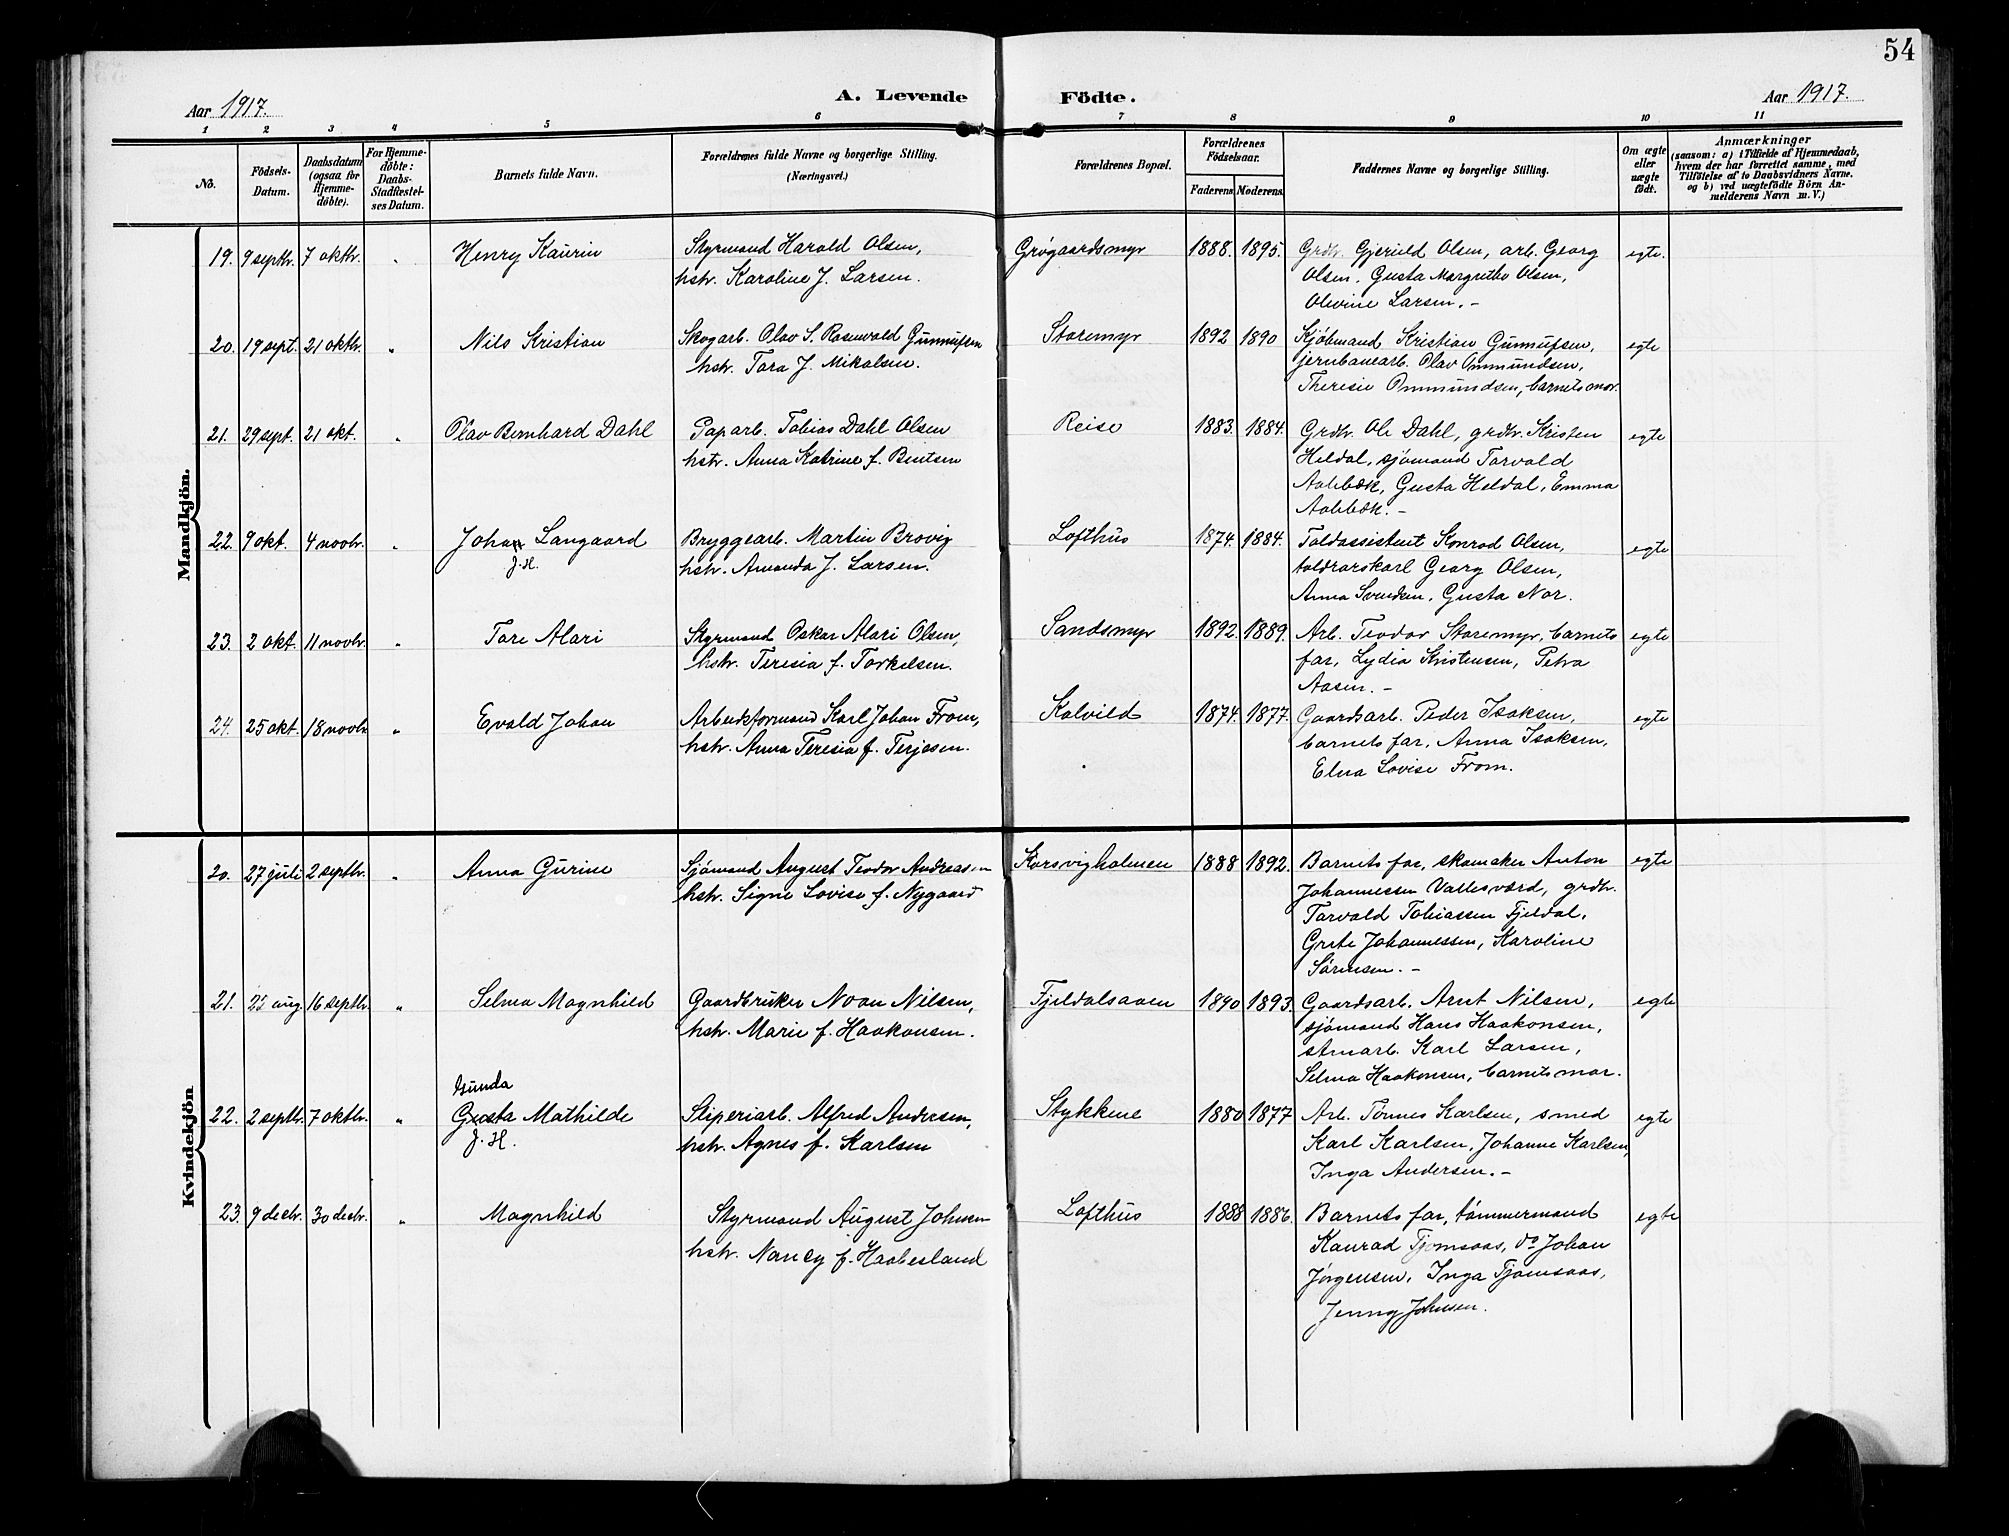 54
Aar 1917. A. Levende Födte. Aar 1917.
1 2 3 4 5 6 7 8 9 10 11
No. Födsels-Datum. Daabsdatum (ogsaa for Hjemme-döbte). For Hjemme-döbte: Daabs-Stadfæstel-ses Datum. Barnets fulde Navn. Forældrenes fulde Navne og borgerlige Stilling. (Næringsvei.) Forældrenes Bopæl. Forældrenes Födselsaar. Faderens Moderens. Faddernes Navne og borgerlige Stilling. Om ægte eller uægte födt. Anmærkninger (saasom: a) i Tilfælde af Hjemmedaab, hvem der har forrettet samme, med Tilföielse af to Daabsvidners Navne. og b) ved uægtefödte Börn An-melderens Navn m. V.)
Mandkjön.
19. 9 septbr. 7 oktbr. " Henry Kaurin Styrmand Harald Olsen, Grøgaardsmyr 1888. 1895. Grdbr. Gjeruld Olsen, arb. Georg egte.
hstr. Karoline f. Larsen. Olsen, Gusta Margrethe Olsen,
Olevine Larsen. -
20. 19 sept. 21 oktbr. " Nils Kristian Skogarb. Olav S. Rosenvald Gunnufsen Storemyr 1892 1890 Kjøbmand Kristian Gunnufsen, egte
hstr. Tora f. Mikalsen. jernbanearb. Olav Ommundsen,
Theresie Ommundsen, barnets mor.
21. 29 sept. 21 okt. " Olav Bernhard Dahl Paparb. Tobias Dahl Olsen Reise 1883. 1884. Grdbr. Ole Dahl, grdbr. Kristen egte
hstr. Anna Katrine f. Bentsen Heldal, sjømand Torvald
Aalebæk, Gusta Heldal, Emma
Aalebæk. -
22. 9 okt. 4 novbr. " Johan Langaard Bryggearb. Martin Brovig Lofthus 1874. 1884. Toldassistent Konrad Olsen, egte
J.H. hstr. Amanda f. Larsen. toldrorskarl Georg Olsen,
Anna Svendsen, Gusta Nor.
23. 2 okt. 11 novbr. " Tore Alari Styrmand Oskar Alari Olsen, Sandsmyr 1892. 1889. Arb. Teodor Storemyr, barnets egte
hstr. Teresia f. Torkelsen. far, Lydia Kristensen, Petra
Aasen. -
24. 25 okt. 18 novbr " Evald Johan Arbeidsformand Karl Johan From, Kalvild 1874. 1877. Gaardsarb. Peder Isaksen, egte
hstr. Anna Teresia f. Terjesen. barnets far, Anna Isaksen,
Elna Lovise From.
Kvindekjön
20. 27 juli 2 septbr. " Anna Gurine Sjømand August Teodor Andreasen Korsvigholmen 1888 1892. Barnets far, skomaker Anton egte
hstr. Signe Lovise f. Nygaard Johannessen Vallesværd, grdbr.
Torvald Tobiassen Fjeldal,
Grete Johannessen, Karoline
Sørensen. -
21. 25 aug. 16 septbr. " Selma Magnhild Gaardbruker Noan Nilsen, Fjeldalsaaen 1890 1893. Gaardsarb. Arnt Nilsen, egte
hstr. Marie f. Haakonsen. sjømand Hans Haakonsen,
stenarb. Karl Larsen,
Selma Haakonsen, barnets mor.
Gunda
22. 2 septbr. 7 oktbr. " Gusta Mathilde Sliperiarb. Alfred Andersen, Stykkene 1880 1877 Arb. Tønnes Karlsen, smed egte
J.H. hstr. Agnes f. Karlsen Karl Karlsen, Johanne Karlsen,
Inga Andersen. -
23. 9 decbr. 30 decbr. " Magnhild Styrmand August Johnsen Lofthus 1888 1886. Barnets far, tømmermand egte
hstr. Nancy f. Haabesland Konrad Tjomsaas, do Johan
Jørgensen, Inga Tjomsaas,
Jenny Johnsen.